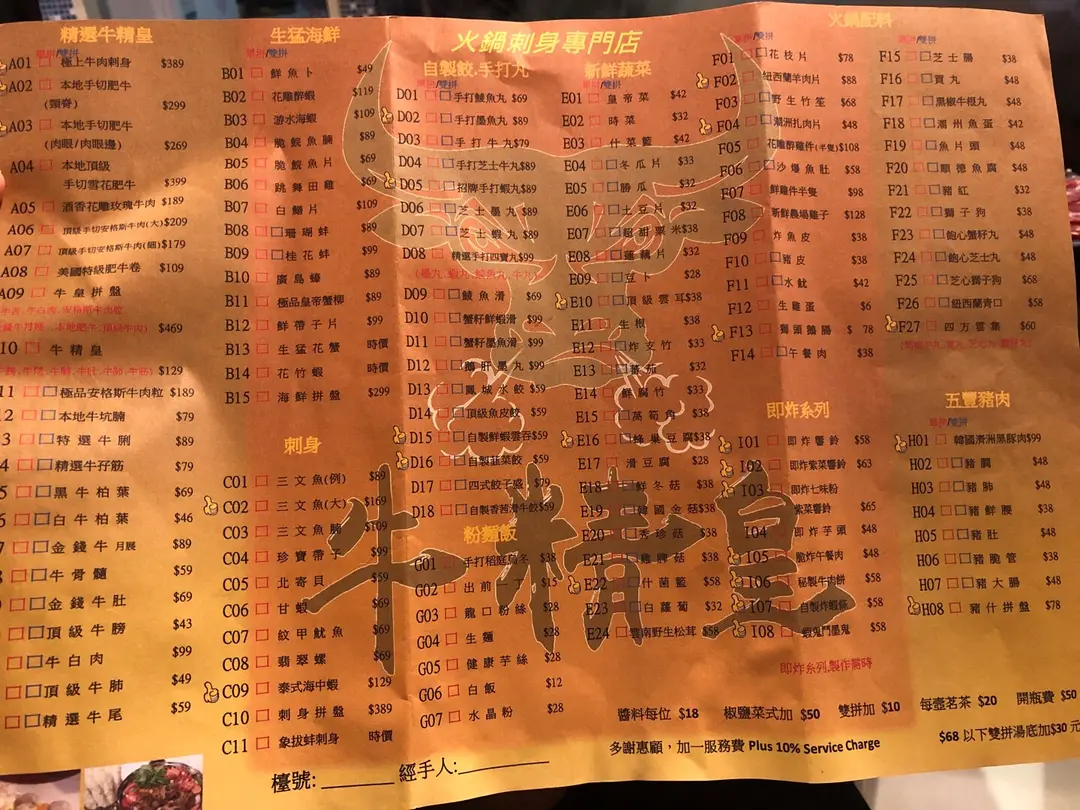 火鍋刺身專門店
精選牛精皇
單拼/雙拼
A01 極上牛肉刺身 $389
A02 本地手切肥牛
(頸脊) $299
A03 本地手切肥牛
(肉眼/肉眼邊) $269
A04 本地頂級
手切雪花肥牛 $399
A05 酒香花雕玫瑰牛肉 $189
A06 頂級手切安格斯牛肉(大) $209
A07 頂級手切安格斯牛肉(細) $179
A08 美國特級肥牛卷 $109
A09 牛皇拼盤
$469
10 牛精皇
$129
11 極品安格斯牛肉粒 $189
12 本地牛坑腩 $79
3 特選牛脷 $89
4 精選牛孖筋 $79
5 黑牛柏葉 $69
6 白牛柏葉 $46
金錢牛月展 $89
牛骨髓 $59
金錢牛肚 $69
頂級牛膀 $43
牛白肉 $99
頂級牛肺 $49
精選牛尾 $59
生猛海鮮
單拼/雙拼
B01 鮮魚卜 $49
B02 花雕醉蝦 $119
B03 游水海蝦 $109
B04 脆鯇魚腩 $89
B05 脆鯇魚片 $89
B06 跳舞田雞 $69
B07 白鱔片 $109
B08 珊瑚蚌 $89
B09 桂花蚌 $99
B10 廣島蠔 $89
B11 極品皇帝蟹柳 $89
B12 鮮帶子片 $99
B13 生猛花蟹 時價
B14 花竹蝦 時價
B15 海鮮拼盤 $299
刺身
C01 三文魚(例) $89
C02 三文魚(大) $169
C03 三文魚腩 $109
C04 珍寶帶子 $99
C05 北寄貝 $59
C06 甘蝦 $69
C07 紋甲魷魚 $69
C08 翡翠螺 $69
C09 泰式海中蝦 $129
C10 刺身拼盤 $389
C11 象拔蚌刺身 時價
自製餃.手打丸
單拼/雙拼
D01 手打鯪魚丸 $69
D02 手打墨魚丸 $89
D03 手打牛丸 $79
D04 手打芝士牛丸 $89
D05 招牌手打蝦丸 $89
D06 芝士墨丸 $89
D07 芝士蝦丸 $89
D08 精選手打四寶丸 $99
(墨丸、蝦丸、鯪魚丸、牛丸)
D09 鯪魚滑 $69
D10 蟹籽鮮蝦滑 $99
D11 蟹籽墨魚滑 $99
D12 鵝肝墨丸 $99
D13 鳳城水餃 $59
D14 頂級魚皮餃 $59
D15 自製鮮蝦雲吞 $59
D16 自製韮菜餃 $59
D17 四式餃子盛 $79
D18 自製香茜滑牛餃 $59
粉麵飯
G01 手打稻庭烏冬 $38
G02 出前一丁 $15
G03 龍口粉絲 $28
G04 生麵 $28
G05 健康芋絲 $28
G06 白飯 $12
G07 水晶粉 $28
新鮮蔬菜
單拼/雙拼
E01 皇帝菜 $42
E02 時菜 $32
E03 什菜籃 $42
E04 冬瓜片 $33
E05 勝瓜 $32
E06 土豆片 $32
E07 超甜粟米 $38
E08 蓮藕片 $32
E09 豆卜 $28
E10 頂級雲耳 $38
E11 生根 $38
E12 炸支竹 $33
E13 蕃茄 $32
E14 鮮腐竹 $33
E15 萵筍角 $38
E16 蜂巢豆腐 $38
E17 滑豆腐 $28
E18 鮮冬菇 $38
E19 韓國金菇 $38
E20 秀珍菇 $38
E21 雞髀菇 $38
E22 什菌籃 $58
E23 白蘿蔔 $32
E24 雲南野生松茸 $58
火鍋配料
單拼/雙拼
F01 花枝片 $78
F02 紐西蘭羊肉片 $88
F03 野生竹笙 $68
F04 潮洲扎肉片 $48
F05 花雕醉雞件(半隻) $108
F06 沙爆魚肚 $58
F07 鮮雞件半隻 $98
F08 新鮮農場雞子 $128
F09 炸魚皮 $38
F10 豬皮 $38
F11 水魷 $42
F12 生雞蛋 $6
F13 獅頭鵝腸 $78
F14 午餐肉 $38
即炸系列
I01 即炸響鈴 $58
I02 即炸紫菜響鈴 $63
I03 即炸七味粉
紫菜響鈴 $65
I04 即炸芋頭 $48
I05 脆炸午餐肉 $48
I06 秘製牛肉餅 $58
I07 自製炸蝦筷 $58
I08 蝦鬼鬥墨鬼 $58
即炸系列,製作需時
單拼/雙拼
F15 芝士腸 $38
F16 貢丸 $38
F17 黑椒牛柀丸 $48
F18 潮州魚蛋 $42
F19 魚片頭 $48
F20 順德魚腐 $48
F21 豬紅 $32
F22 獅子狗 $38
F23 鮑心蟹籽丸 $48
F24 鮑心芝士丸 $48
F25 芝心獅子狗 $68
F26 紐西蘭青口 $58
F27 四方雲集 $60
五豐豬肉
單拼/雙拼
H01 韓國濟洲黑豚肉 $99
H02 豬膶 $48
H03 豬肺 $48
H04 豬鮮腰 $38
H05 豬肚 $48
H06 豬脆管 $38
H07 豬大腸 $48
H08 豬什拼盤 $78
牛精皇
醬料每位 $18 椒鹽菜式加 $50 雙拼加 $10 每壺茗茶 $20 開瓶費 $50
多謝惠顧，加一服務費 Plus 10% Service Charge
$68 以下雙拼湯底加$30 元
檯號: 經手人: